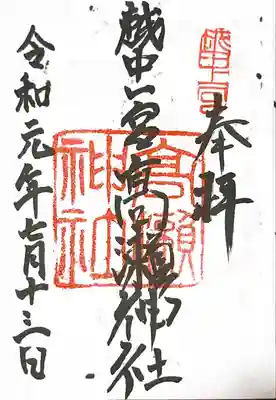 奉拝
越中一宮
越中一宮高瀬神社
高瀬神社
令和元年七月十三日